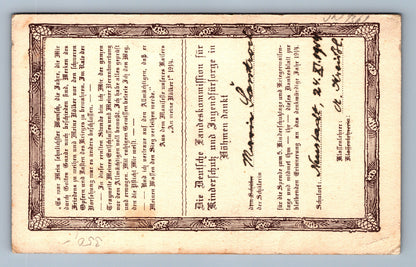 „Es war Mein sehnlichster Wunsch, die Jahre, die Mir
durch Gottes Gnade noch beschieden sind, Werken des
Friedens zu weihen und Meine Völker vor den schweren
Opfern und Lasten des Krieges zu bewahren. Im Rate der
Vorsehung ward es anders beschlossen. — —
— In dieser ernsten Stunde bin Ich Mir der ganzen
Tragweite Meines Entschlusses und Meiner Verantwortung
vor dem Allmächtigen voll bewußt. Ich habe alles geprüft
und erwogen. Mit ruhigem Gewissen betrete Ich den Weg,
den die Pflicht Mir weist. — —
— Und Ich vertraue auf den Allmächtigen, daß er
Meinen Waffen den Sieg verleihen werde.“
Aus dem Manifeste unseres Kaisers
„An meine Völker!“ 1914.
Die Deutsche Landeskommission für
Kinderschutz und Jugendfürsorge in
Böhmen dankt
Marie
dem Schüler
der Schülerin
für die Spende zugunsten
bleibenden Erinnerung an das denkwürdige Jahr 1914.
Schulort: Neustadt, 24. XI. 1914
Klassenlehrer:
Klassenlehrerin:
350